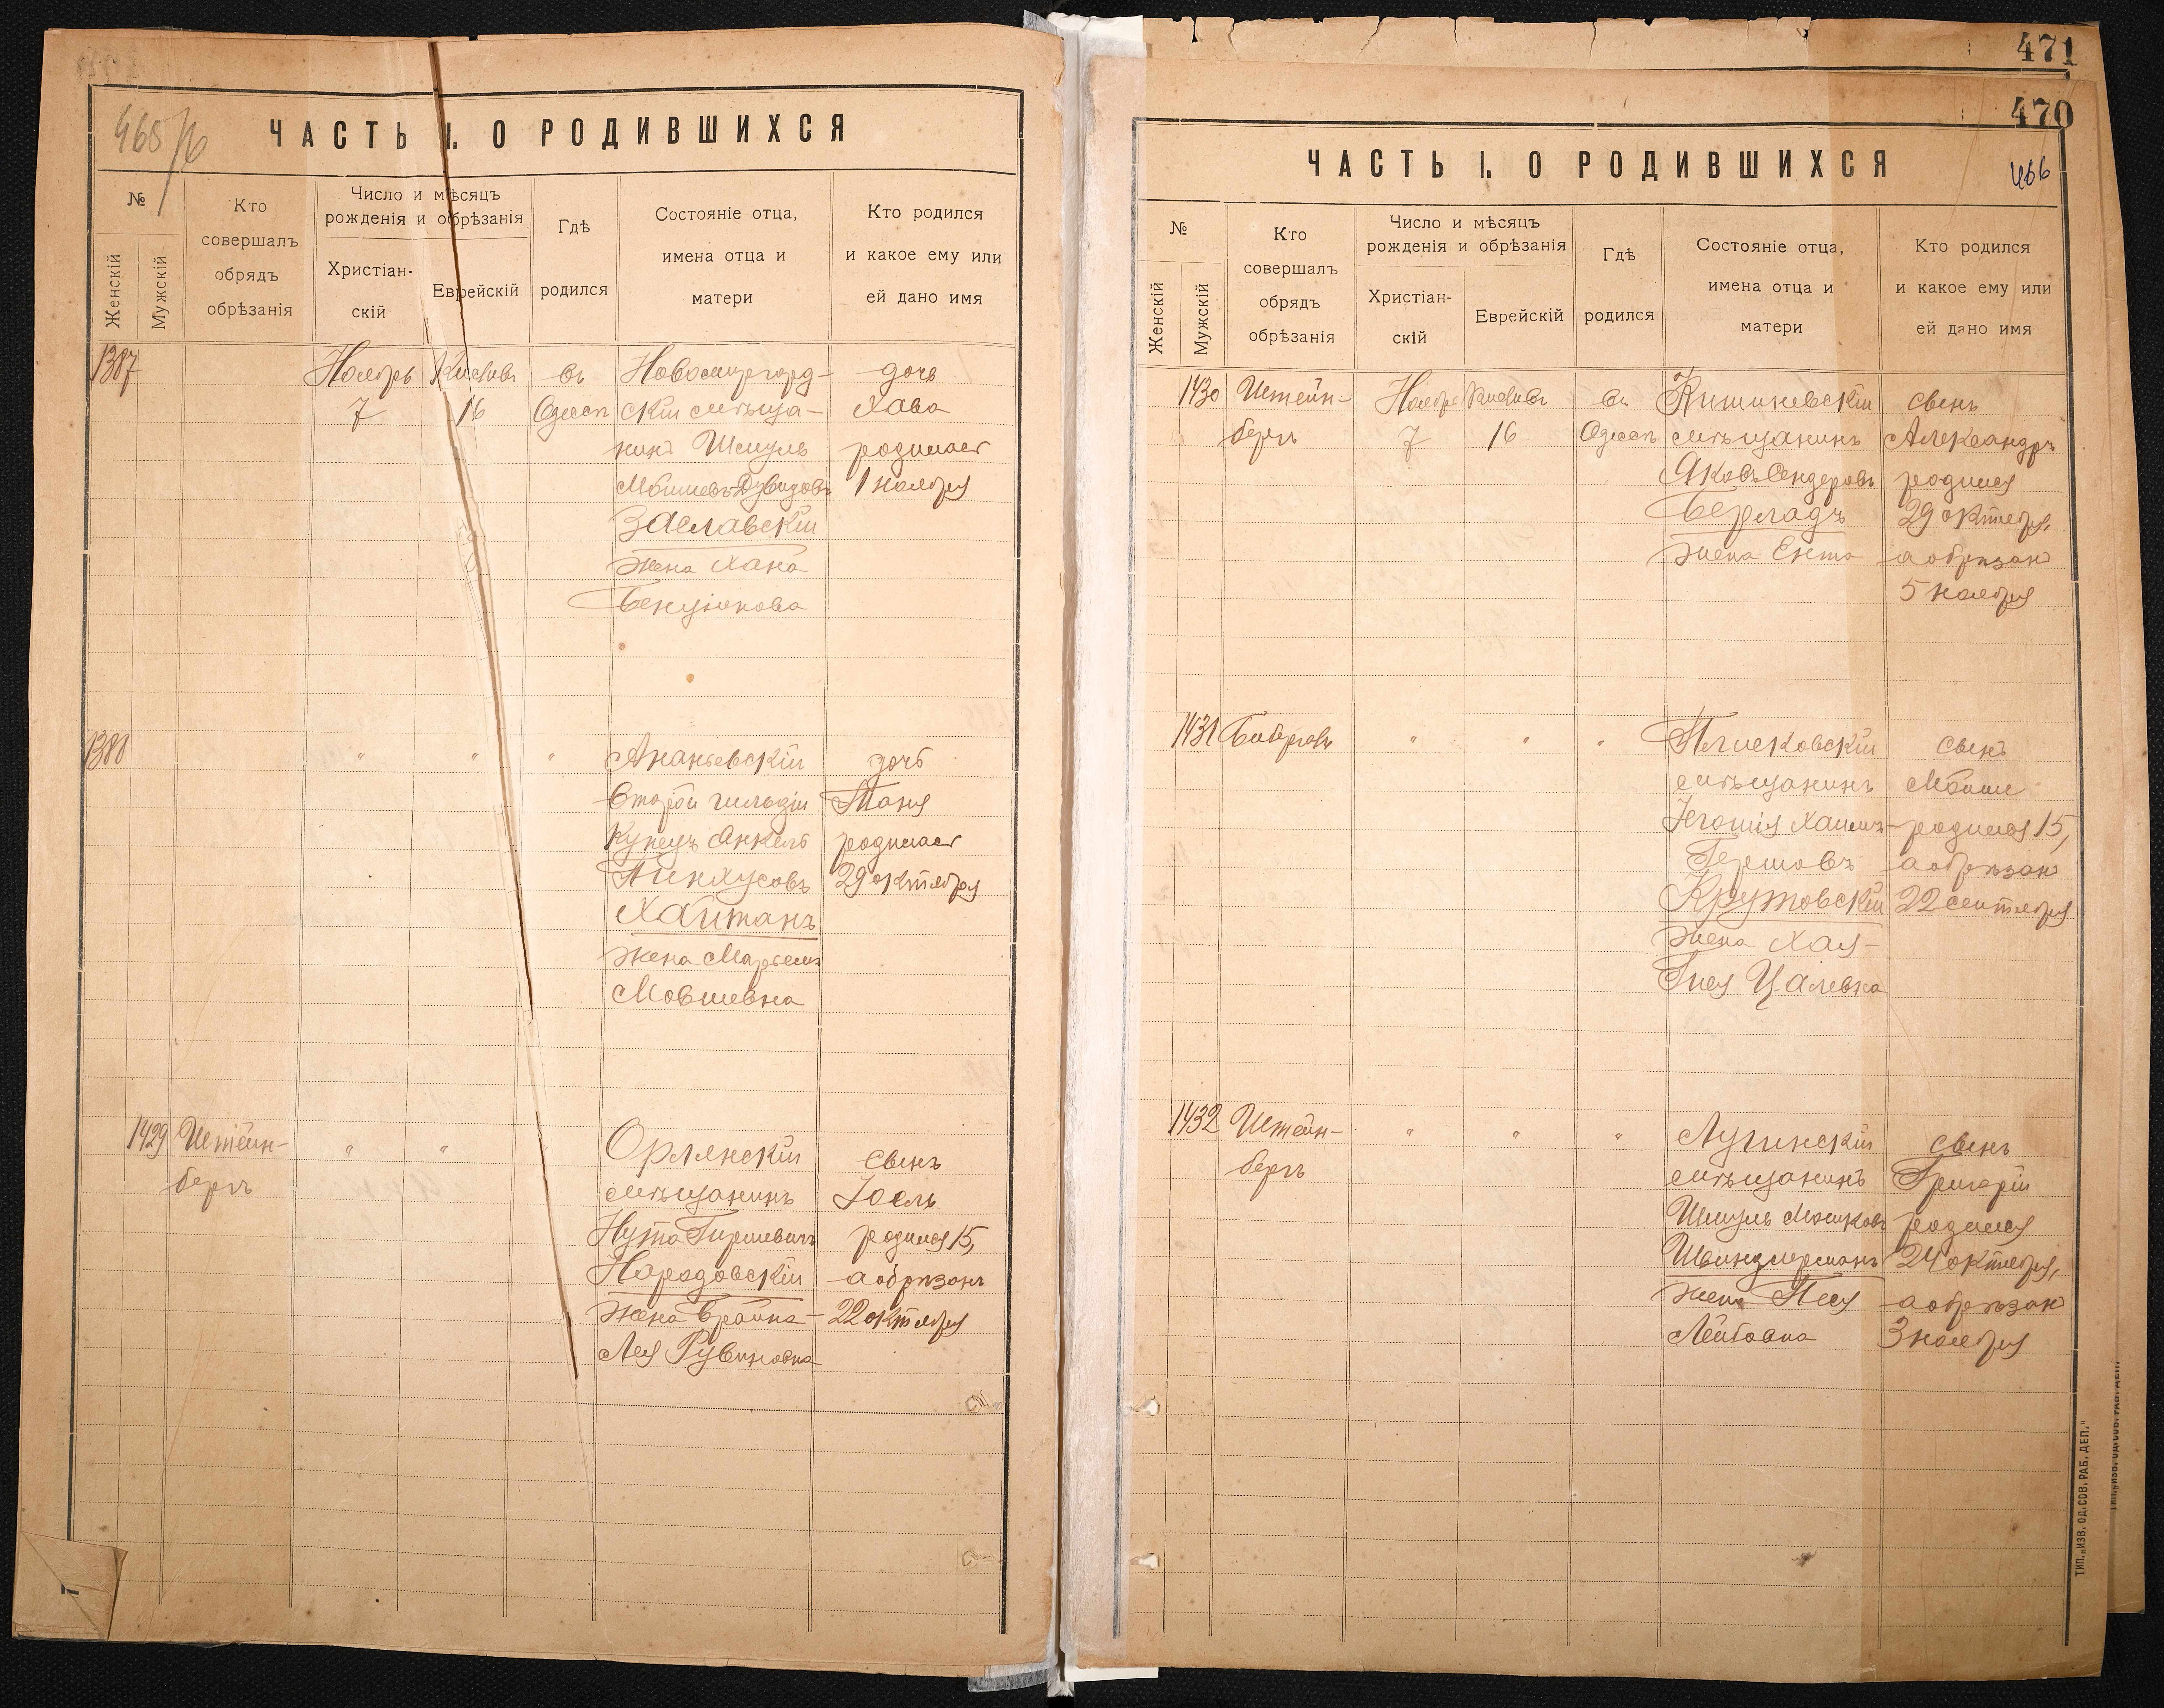 465/16
ЧАСТЬ I. О РОДИВШИХСЯ
№
Женскій
Мужскій
Кто
совершалъ
обрядъ
обрѣзанія
Число и мѣсяцъ
рожденія и обрѣзанія
Христіан-
скій
Еврейскій
Гдѣ
родился
Состояніе отца,
имена отца и
матери
Кто родился
и какое ему или
ей дано имя
1387
Ноябрь
7
Кислевъ
16
въ
Одессѣ
Новомиргород-
скій мѣща-
нинъ Шмуль
Мошковъ-Дувидовъ
Заславскій
жена Хана
Бенціонова
дочь
Хава
родилась
1 ноября
1388
"
"
"
Ананьевскій
второй гильдіи
купецъ Анкель
Пинхусовъ
Хаитанъ
жена Маріемъ
Мовшевна
дочь
Таня
родилась
29 октября
1429
Штейн-
бергъ
"
"
Орлянскій
мѣщанинъ
Нута Гиршевичъ
Народовскій
жена Брайна-
Лея Рувиновна
сынъ
Іоель
родился 15,
а обрѣзанъ
22 октября
471
470
466
ЧАСТЬ I. О РОДИВШИХСЯ
№
Женскій
Мужскій
Кто
совершалъ
обрядъ
обрѣзанія
Число и мѣсяцъ
рожденія и обрѣзанія
Христіан-
скій
Еврейскій
Гдѣ
родился
Состояніе отца,
имена отца и
матери
Кто родился
и какое ему или
ей дано имя
1430
Штейн-
бергъ
Ноябрь
7
Кислевъ
16
въ
Одессѣ
Кишиневскій
мѣщанинъ
Яковъ Сендеровъ
Берладъ
жена Ента
сынъ
Александръ
родился
29 октября,
а обрѣзанъ
5 ноября
1431
Биберовъ
"
"
"
Плисковскій
мѣщанинъ
Хаимъ-
Гершовъ
Крутовскій
жена Хая-
Гися Цалевна
сынъ
Мойше
родился 15,
а обрѣзанъ
22 сентября
1432
Штейн-
бергъ
"
"
"
Лугинскій
мѣщанинъ
Шмуль Мошковъ
Швиндлерманъ
жена Песя
Лейбовна
сынъ
Григорій
родился
24 октября,
а обрѣзанъ
3 ноября
ТИП. „ИЗВ. ОД. СОВ. РАБ. ДЕП."